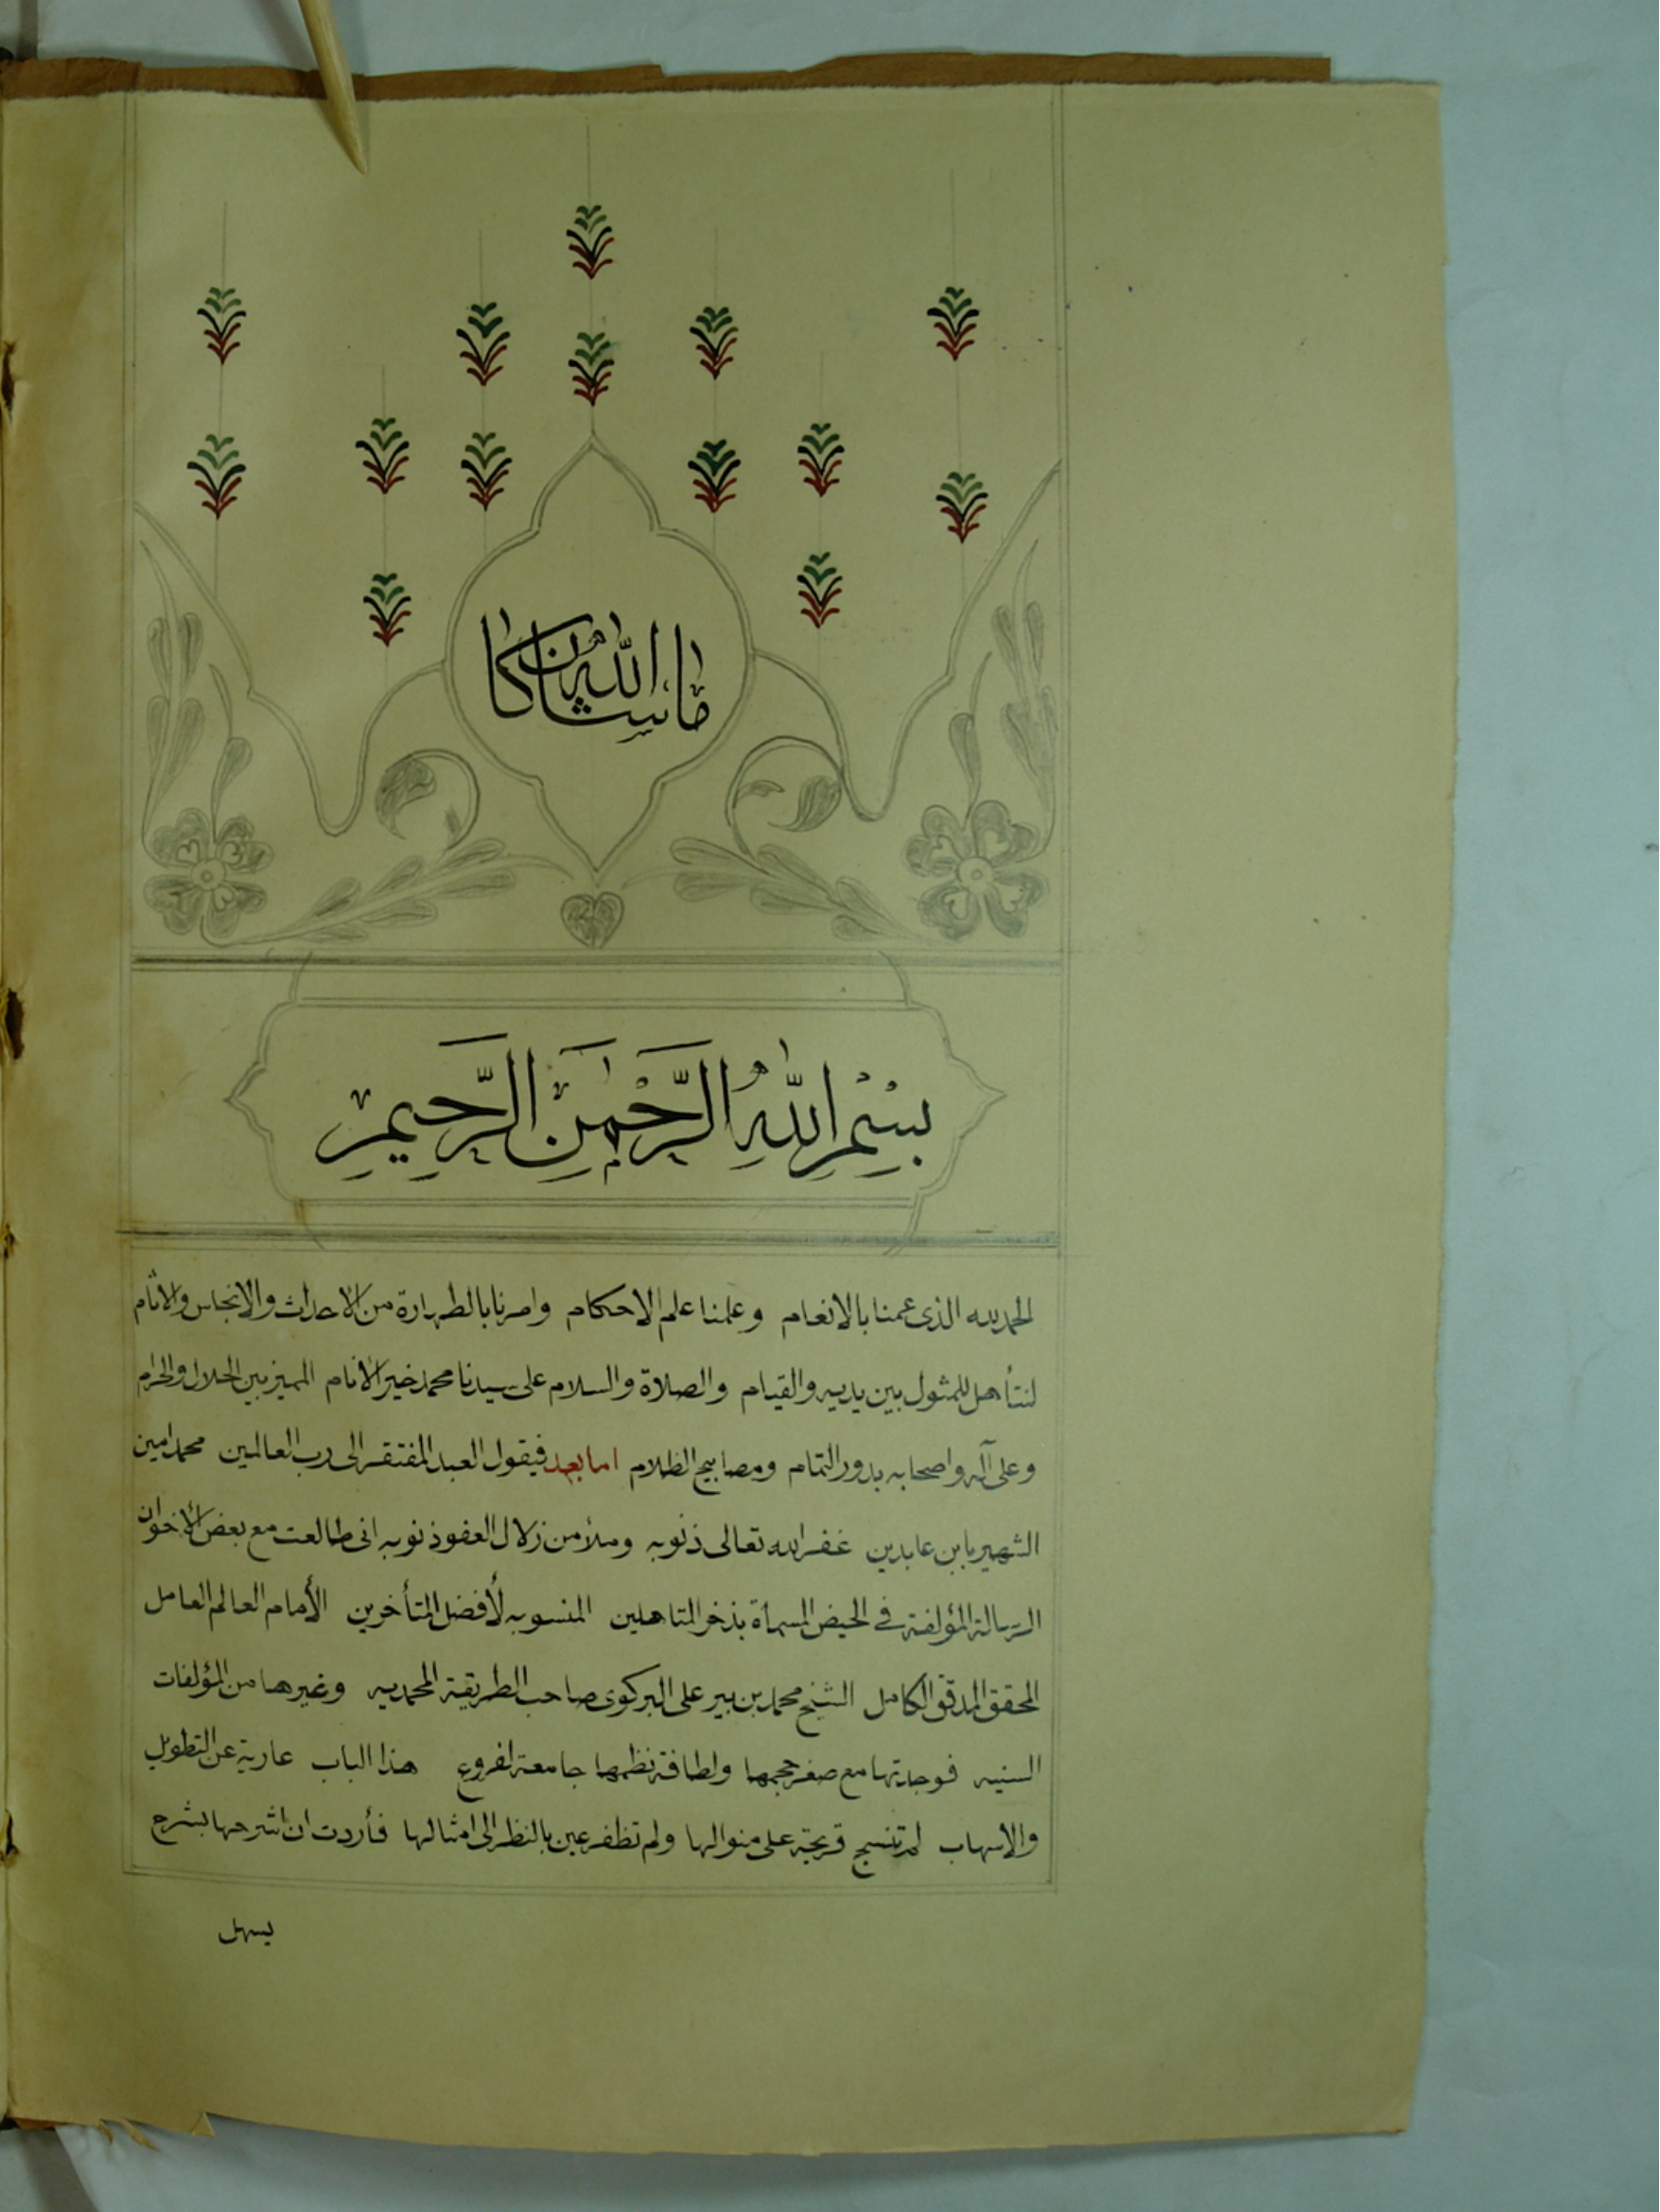 ما شاء الله كان
بِسْمِ اللهِ الرَّحْمٰنِ الرَّحِيمِ
الحمد لله الذى عمنا بالانعام وعلمنا علم الاحكام وامرنا بالطهارة من الاحداث والانجاس والاثام
لنتأهل للمثول بين يديه والقيام والصلاة والسلام على سيدنا محمد خير الانام المميز بين الحلال والحرام
وعلى آله واصحابه بدور التمام ومصابيح الظلام اما بعد فيقول العبد المفتقر الى رب العالمين محمد امين
الشهير بابن عابدين غفر الله تعالى ذنوبه وملأ من زلال العفو ذنوبه انى طالعت مع بعض الأخوان
الرسالة المؤلفة في الحيض المسماة بذخر المتاهلين المنسوبه لأفضل المتأخرين الأمام العالم العامل
المحقق المدقق الكامل الشيخ محمد بن بير على البركوى صاحب الطريقة المحمديه وغيرها من المؤلفات
السنيه فوجدتها مع صغر حجمها ولطافة نظمها جامعة لفروع هذا الباب عارية عن التطويل
والاسهاب لم تنسج قريحة على منوالها ولم تظفر عين بالنظر الى امثالها فأردت ان اشرحها بشرح
يسهل